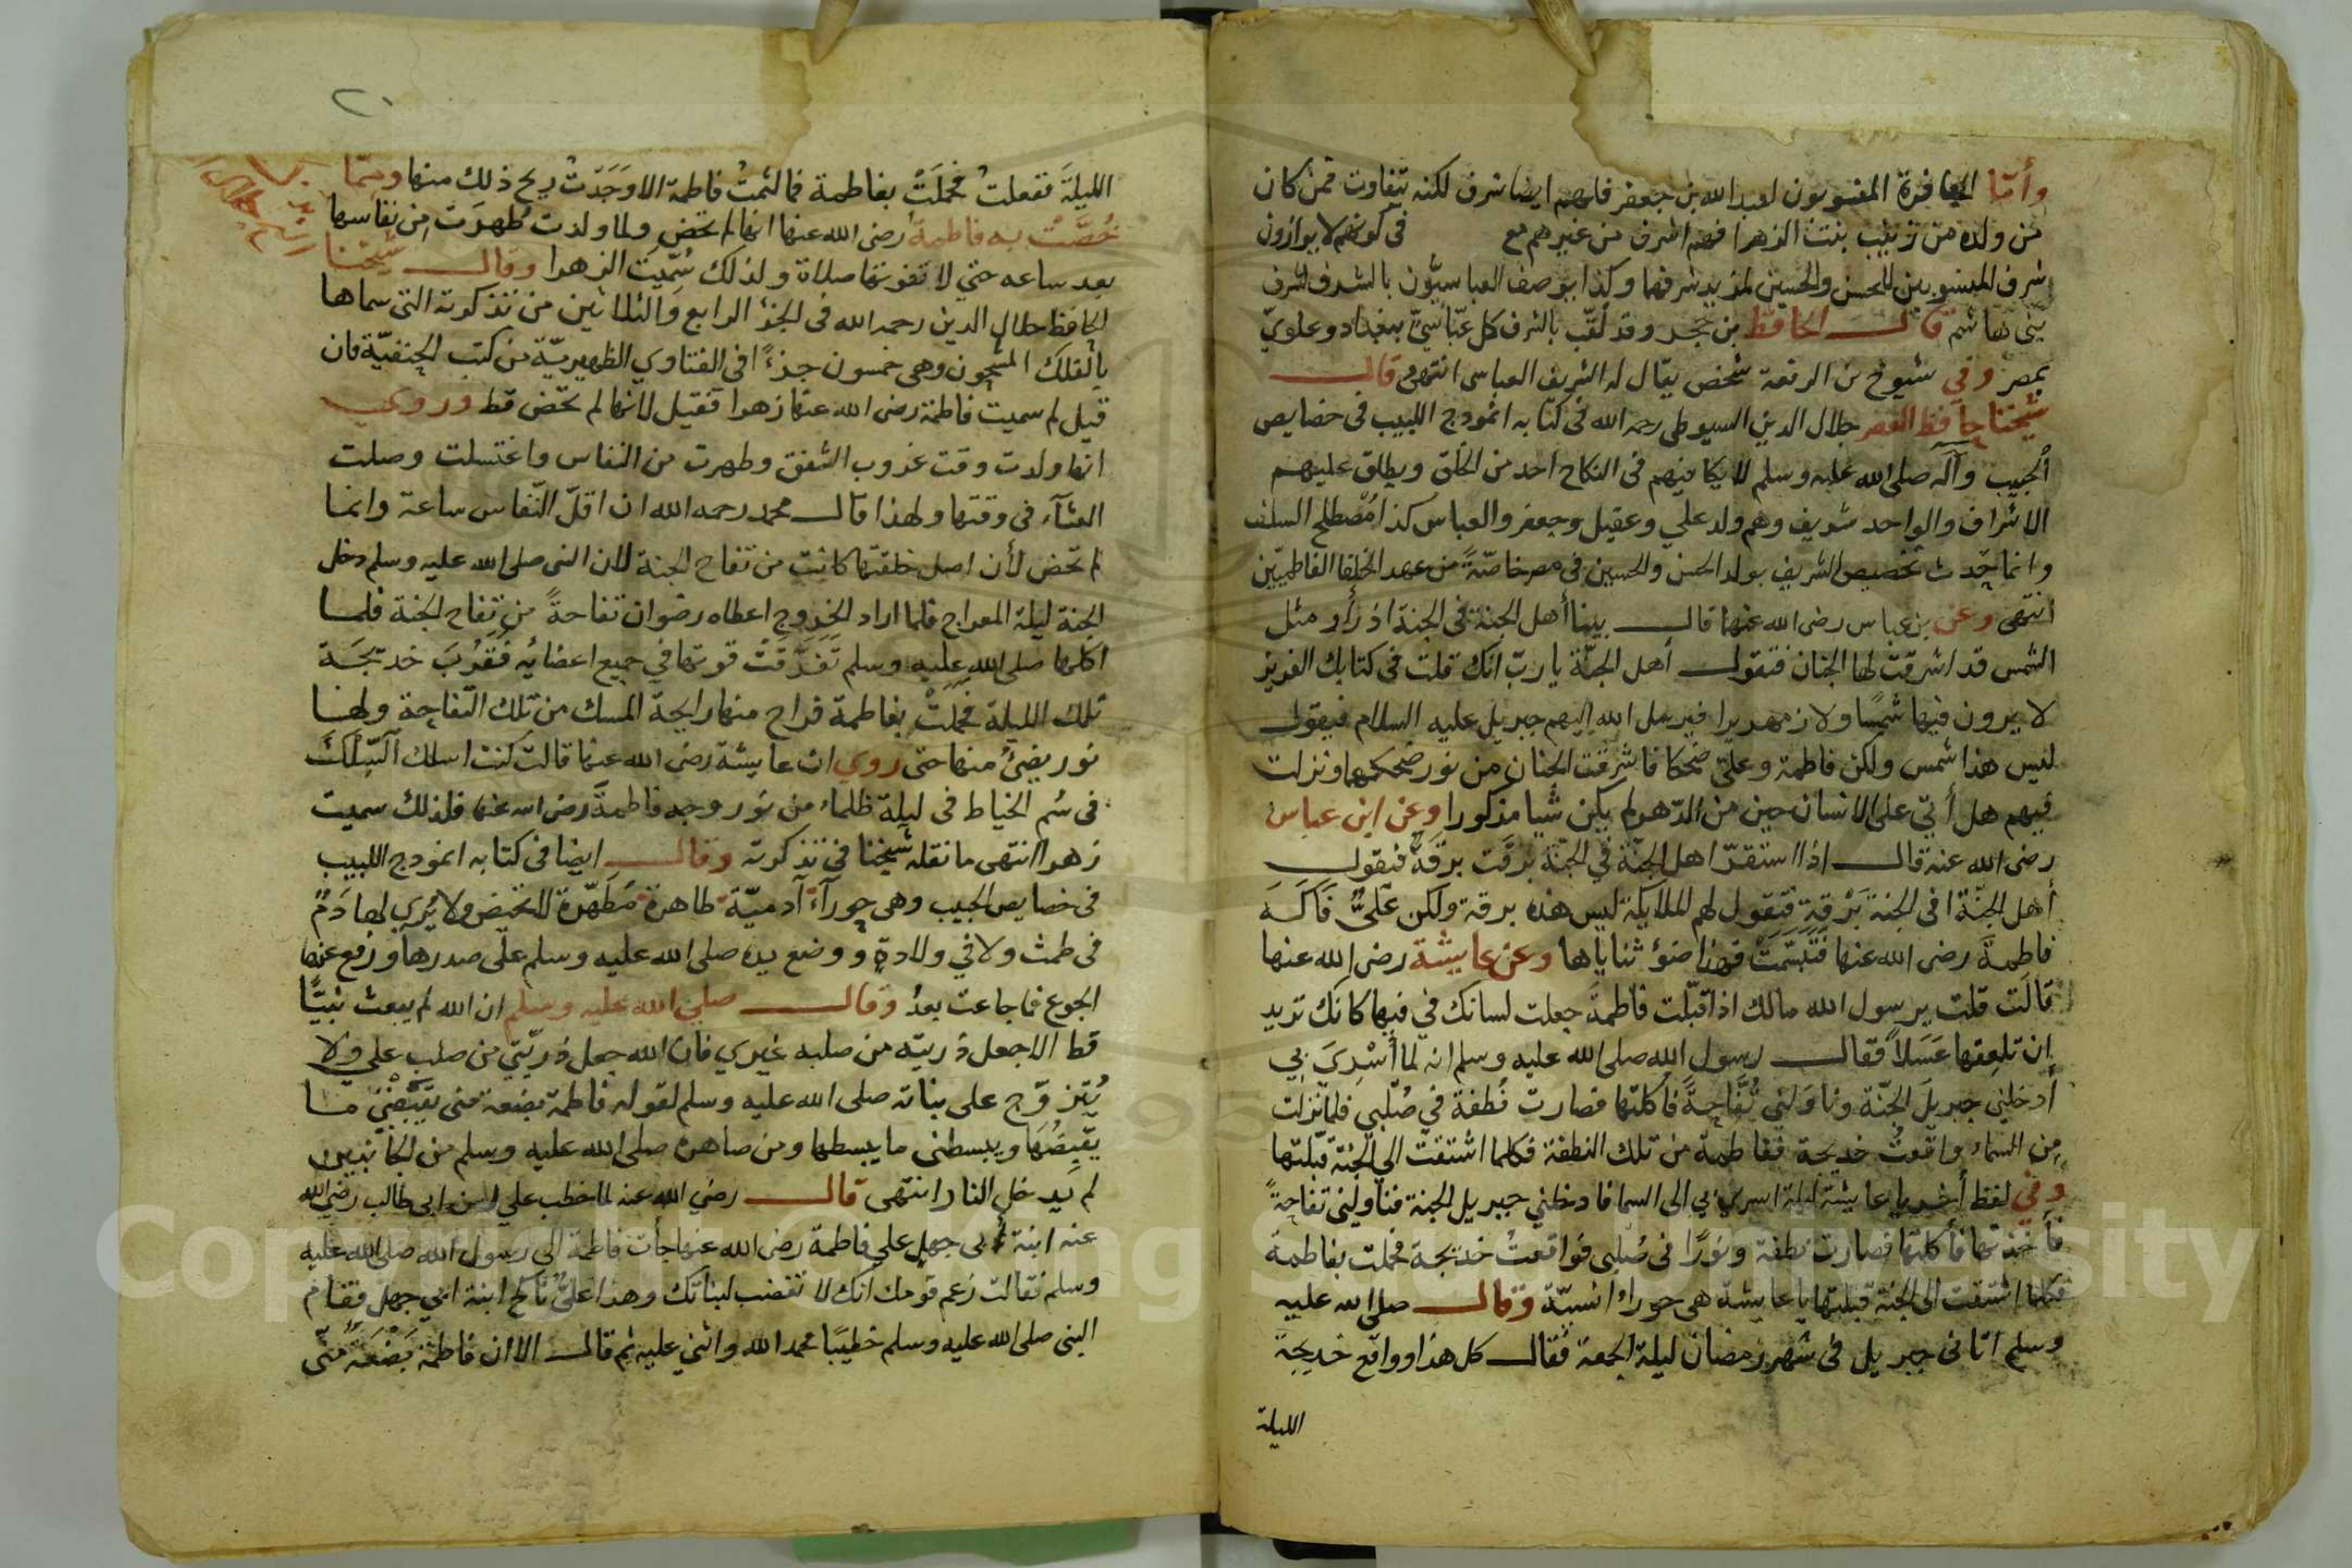 وأما الجعافرة المنسوبون لعبد الله بن جعفر فلهم ايضا شرف لكنه يتفاوت فمن كان
من ولده من زينب بنت الزهرا فهم اشرف من غيرهم مع في كونهم لا يوازون
شرف المنسوبين للحسن والحسين لمزيد شرفهما وكذا يوصف العباسيون بالشرف لشرف
بني هاشم قال الحافظ بن حجر وقد لقب بالشرف كل عباسيّ ببغداد وعلويّ
بمصر وفي شيوخ بن الرفعة شخص يقال له الشريف العباسي انتهى قال
شيخنا حافظ العصر جلال الدين السيوطي رحمه الله في كتابه انموذج اللبيب في خصايص
الحبيب وآله صلى الله عليه وسلم لا يكافيهم في النكاح احد من الخلق ويطلق عليهم
الاشراف والواحد شريف وهم ولد علي وعقيل وجعفر والعباس كذا مُصْطلح السلف
وانما حَدث تخصيص الشريف بولد الحسن والحسين في مصر خاصّةً من عهد الخلفا الفاطميّين
انتهى وعن بن عباس رضى الله عنهما قال بينا أهل الجنة في الجنة اذ رأو مثل
الشمس قد اشرقت لها الجنان فتقول أهل الجنّة يا ربّ انك قلت في كتابك العزيز
لا يرون فيها شمسًا ولا زمهريرا فيرسل الله اليهم جبريل عليه السلام فيقول
ليس هذا شمس ولكن فاطمة وعليّ ضحكا فاشرقت الجنان من نور ضحكهما ونزلت
فيهم هل أتى على الانسان حين من الدّهر لم يكن شيا مذكورا وعن ابن عباس
رضى الله عنه قال اذا استقرّ اهل الجنّة في الجنّة برقت برقةٌ فيقول
أهل الجنّة افى الجنة بَرْقةٍ فتقول لهم الملايكة ليس هذه برقة ولكن عليٌّ
فاطمةَ رضى الله عنها فتبسّمتْ فهذا ضوُ ثناياها وعن عايشة رضى الله عنها
قالت قلت يرسول الله مالك اذا قبّلت فاطمةَ جعلت لسانك في فيها كانك تريد
ان تلعِقها عَسَلاً فقال رسول الله صلى الله عليه وسلم انه لما أُسْرِيَ بي
أدخلني جبريلَ الجنّة وناوَلني تُفَّاحةً فاكلتها فصارت نُطفة في صُلْبي فلما نزلت
مِن السماء واقعتُ خديجة ففاطمة من تلك النطفة فكلما اشتقت الي الجنة قبّلتها
وفي لفظ أخر يا عايشة ليلة اسري بي الى السما فادخلني جبريل الجنة فناولني تفاحةً
فأخذتها فأكلتها فصارت نطفة ونورًا في صُلبي فواقعتُ خديجة فحملت بفاطمة
فكلما اشتقت الى الجنة قبلتها يا عايشة هي حوراء انسيّة وقال صلى الله عليه
وسلم اتاني جبريل في شهر رمضان ليلة الجمعة فقال كل هذا وواقع خديجة
الليلة
٢٠
الليلةَ ففعلتُ فحملَتْ بفاطمة فما لثمتُ فاطمة الا وَجَدْتُ ريح ذلك منها ومما
خُصَّتْ به فاطمة رضى الله عنها انها لم تحض ولما ولدت طُهرَت مِن نفاسها
بعد ساعه حتي لا تفوتها صلاة ولذلك سُمّيت الزهرا وقال شيخنا
الحافظ جلال الدين رحمه الله في الجزْ الرابع والثلاثين من تذكرته التي سماها
بالفلك المشحون وهي خمسون جزءًا في الفتاوي الظهيريّة من كتب الحنفيّة فان
قيل لم سميت فاطمة رضى الله عنها زهرا فقيل لانها لم تحض قط وروي
انها ولدت وقت غروب الشفق وطهرت من النفاس واغتسلت وصلت
العشآء في وقتها ولهذا قال محمد رحمه الله ان اقلّ النّفاس ساعة وانما
لم تحض لأن اصل خلقتها كانت من تفاح الجنة لان النبي صلى الله عليه وسلم دخل
الجنة ليلة المعراج فلما اراد الخروج اعطاه رضوان تفاحةً من تفاح الجنة فلما
اكلها صلى الله عليه وسلم تَفَرَّقتْ قوتها في جميع اعضايُه فقَرُبَ خديجَة
تلك الليلة فحملَتْ بفاطمة فراح منها رايحة المسك من تلك التفاحة ولها
نور يضئُ منها حتى روي ان عايشة رضى الله عنها قالت كنت اسلك السِّلْكَ
في سُم الخياط في ليلة ظلماء من نور وجه فاطمةَ رضى الله عنها فلذلك سميت
زهرا انتهى ما نقله شيخنا في تذكرته وقال ايضا في كتابه انموذج اللبيب
في خصايص الحبيب وهي حورآءُ آدميّة طاهرة مُطَهّرة لا تحيض ولا يُري لها دَمٌ
في طمث ولا في ولادةٍ ووضع يده صلى الله عليه وسلم على صدرها ورفع عنها
الجوع فما جاعت بعدُ وقال صلى الله عليه وسلم ان الله لم يبعث نبيًّا
قط الا جعل ذريته من صلبه غيري فان الله جعل ذريّتي من صلب علي ولا
يُتزوّج على بناته صلى الله عليه وسلم لقوله فاطمة بضعة منى يقبِضُني ما
يقبِضُهَا ويبسطنى ما يبسطها ومن صاهره صلى الله عليه وسلم من الجانبين
لم يَدخل النار انتهى قال رضي الله عنه لما خطب علي ابن ابي طالب رضي الله
عنه ابنة أبي جهل علي فاطمة رضى الله عنها جأت فاطمة الي رسول الله صلى الله عليه
وسلم فقالت زعم قومك انك لا تغضب لبناتك وهذا عليٌّ ناكح ابنة ابي جهل فقام
النبي صلى الله عليه وسلم خطيبًا فحمد الله واثني عليه ثم قال الا ان فاطمة بَضْعَةٌ منّي